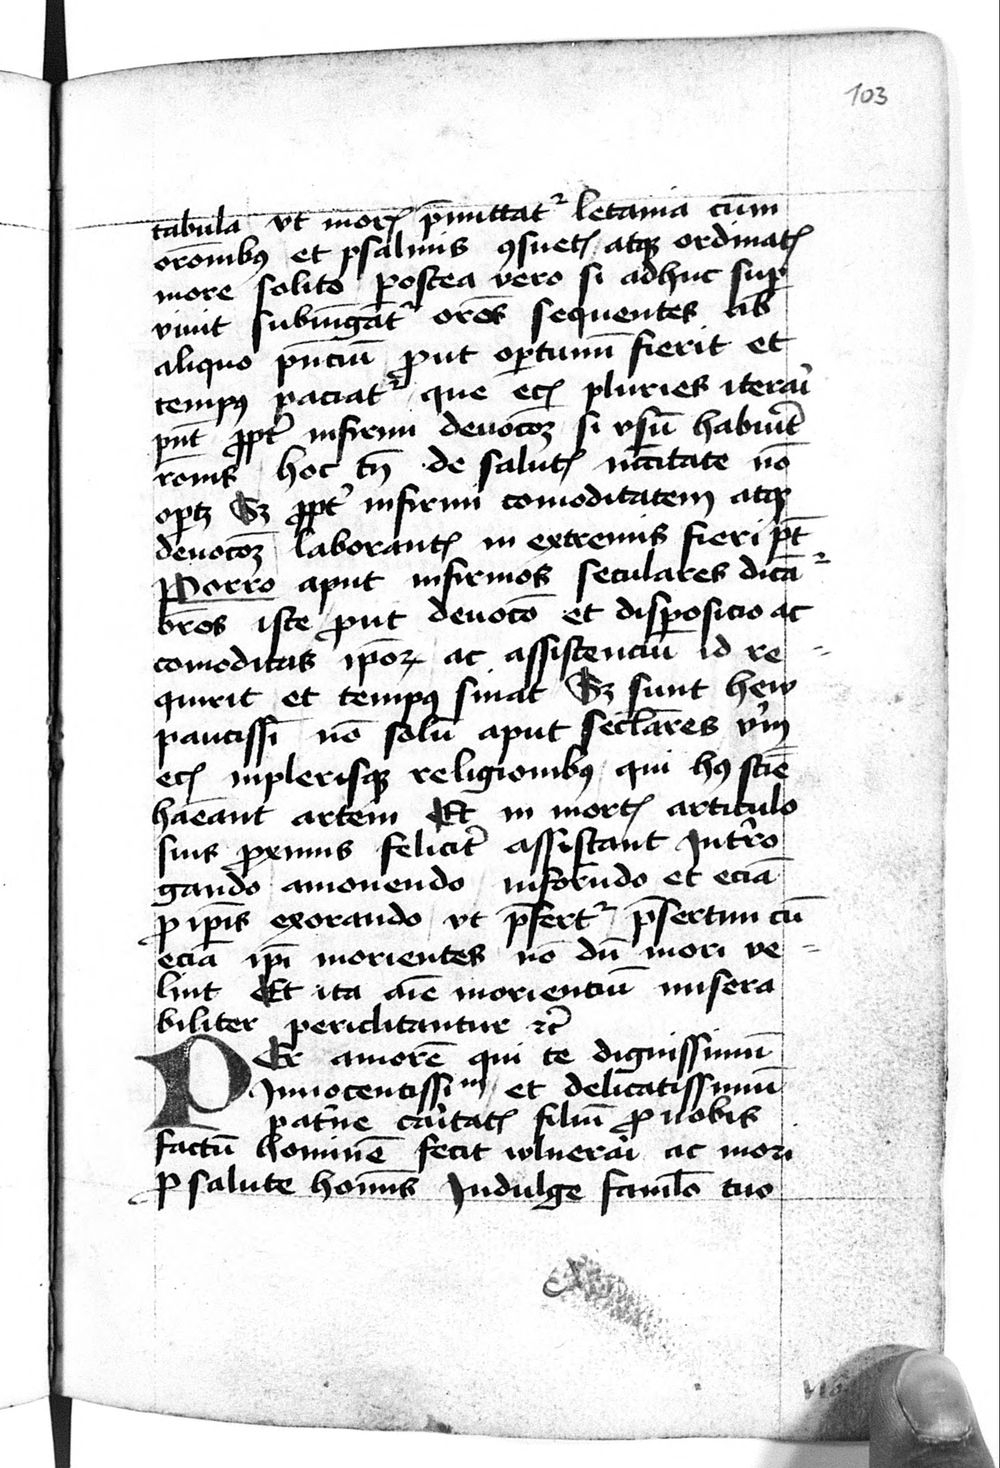 103
tabula vt morꝭ p̄mittatʳ letania cum
oronibꝰ et psalmis ꝯsuetꝭ atqꝫ ordinatꝭ
more solito postea vero si adhuc suꝑ
viuit subiūgāt² orōēs sequentes ab
aliquo p̄ntiū ꝓut oportunū fierit et
tempꝰ paciatʳ que ecꝭ pluries iterari
pn̄t ꝓpt̄ infirmi deuocōꝫ si vsū habūit
rōnis hoc tn̄ de salutꝭ nccitate nō
oportꝫ Sꝫ ꝓpt̄ infirmi comoditatem atqꝫ
deuocōꝫ laborantꝭ in extremis fieri pt̄
Porro aput infirmos seculares dicāʳ
orōēs iste ꝓut deuocō et disposicio ac
comoditas ipōꝝ ac assistenciū id re
quirit et tempꝰ sinat Sꝫ sunt hew
paucissī nō solū aput seclāres vm̄
ecꝭ inplerisqꝫ religionibꝰ qui hꝰ sciē
hāeant artem Et in mortꝭ articulo
suis ꝓximis felicit̄ assistant Int̄ro
gando amonendo informdo et eciā
ꝓ ip̄is exorando vt p̄fertʳ p̄sertim cū
ecia ip̄i morientes nō dū mori ve
lint Et ita aīe morienciū misera
biliter periclitantur ⁊c̄
PEr amorē qui te dignissimū
Innocentissiᵐ et delicatissimū
pat̄ne cāitatꝭ filiū ꝓ nobis
factū hominē fecit wlnerāi ac mori
ꝓ salute hoīnis Indulge famlō tuo